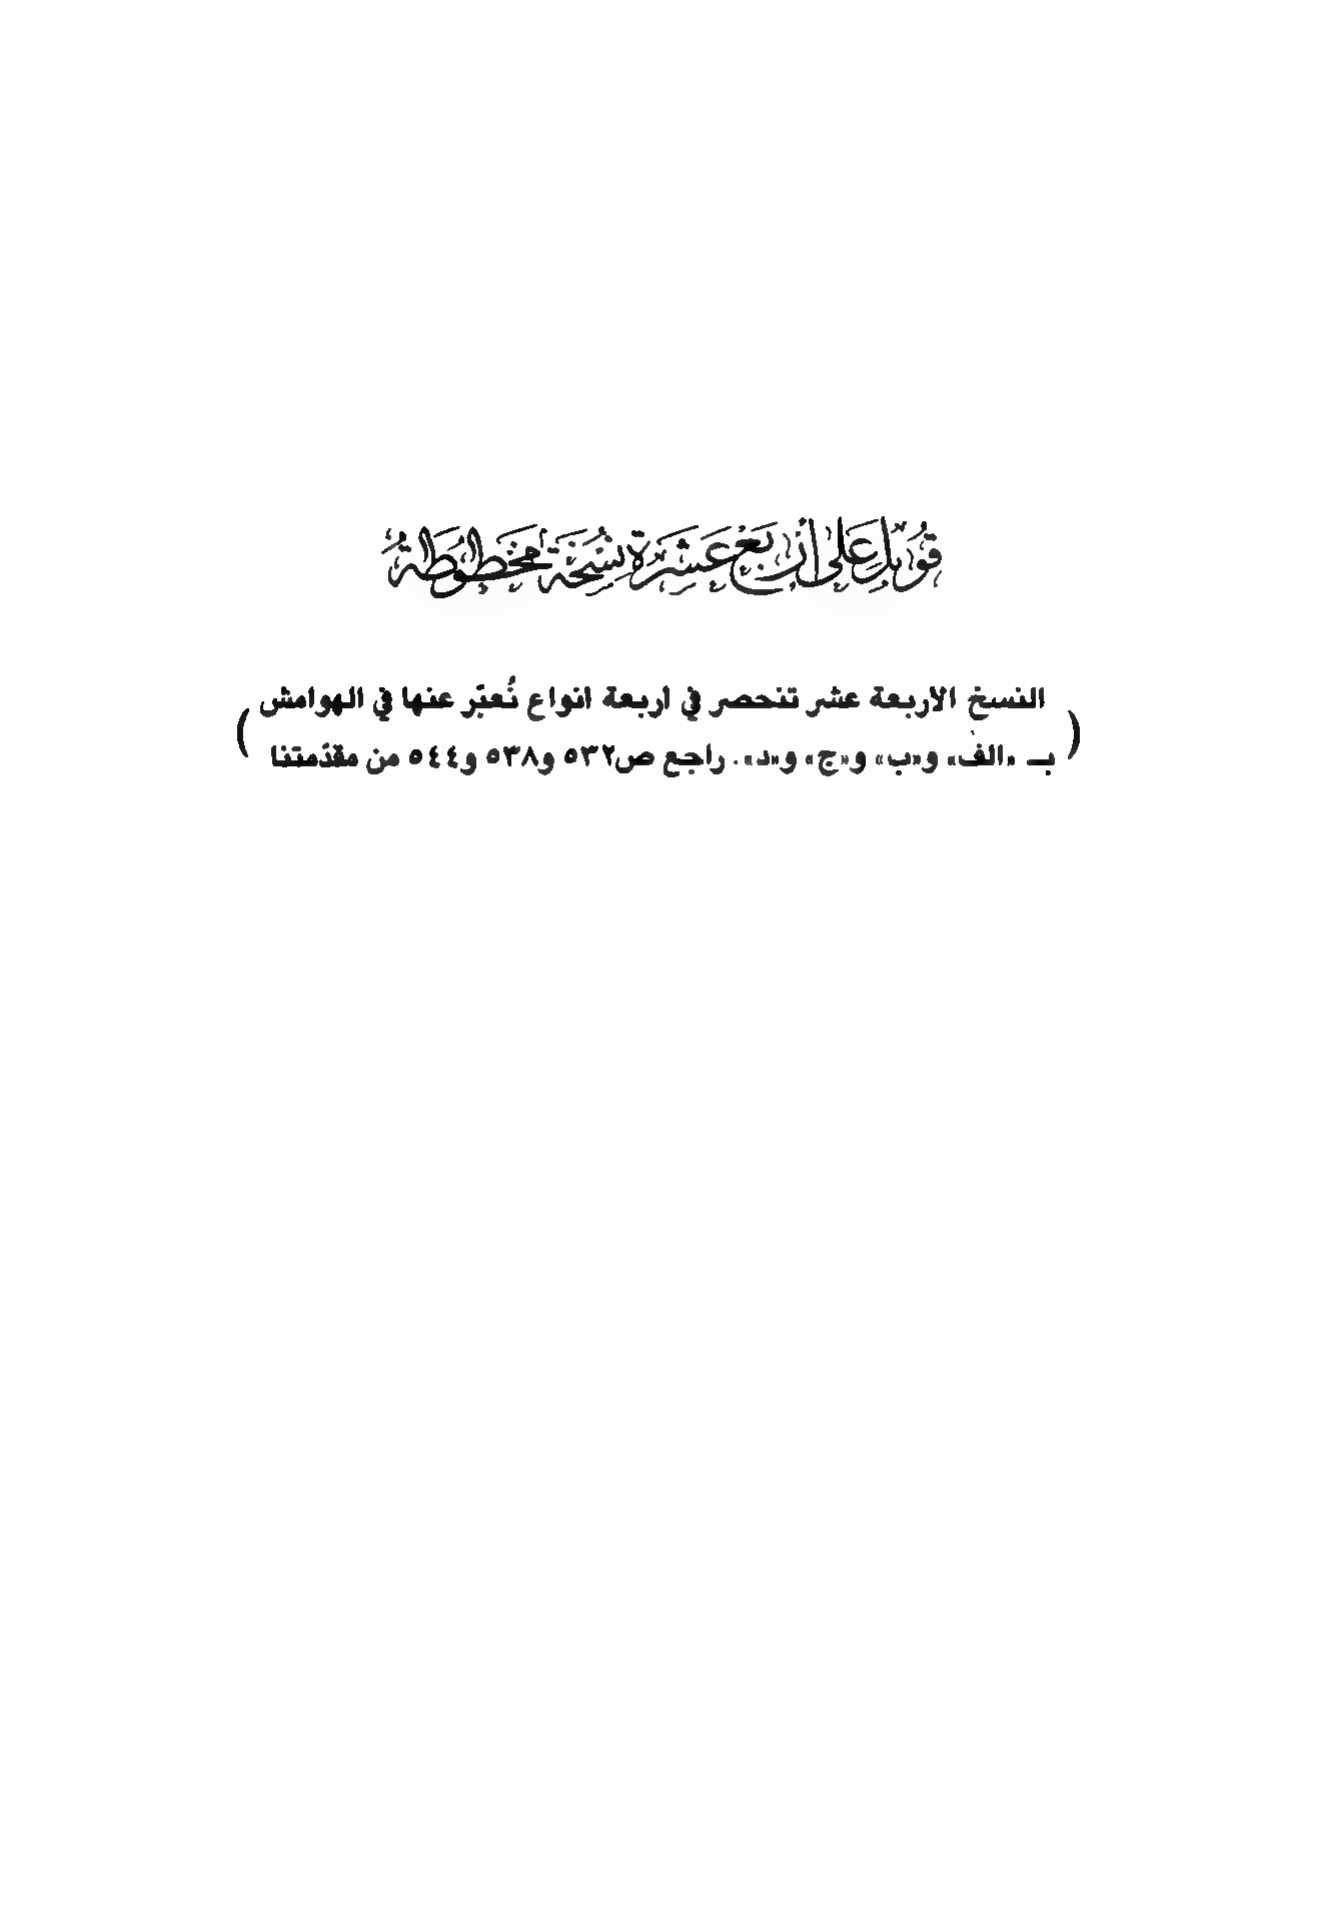 قُوبِلَ عَلى أَرْبَعَ عَشِرَةَ نُسْخَةً مَخْطُوطَةً
( النسخ الاربعة عشر تنحصر في اربعة انواع نُعبّر عنها في الهوامش
بـ «الف» و«ب» و«ج» و«د». راجع ص٥٣٢ و٥٣٨ و٥٤٤ من مقدّمتنا )